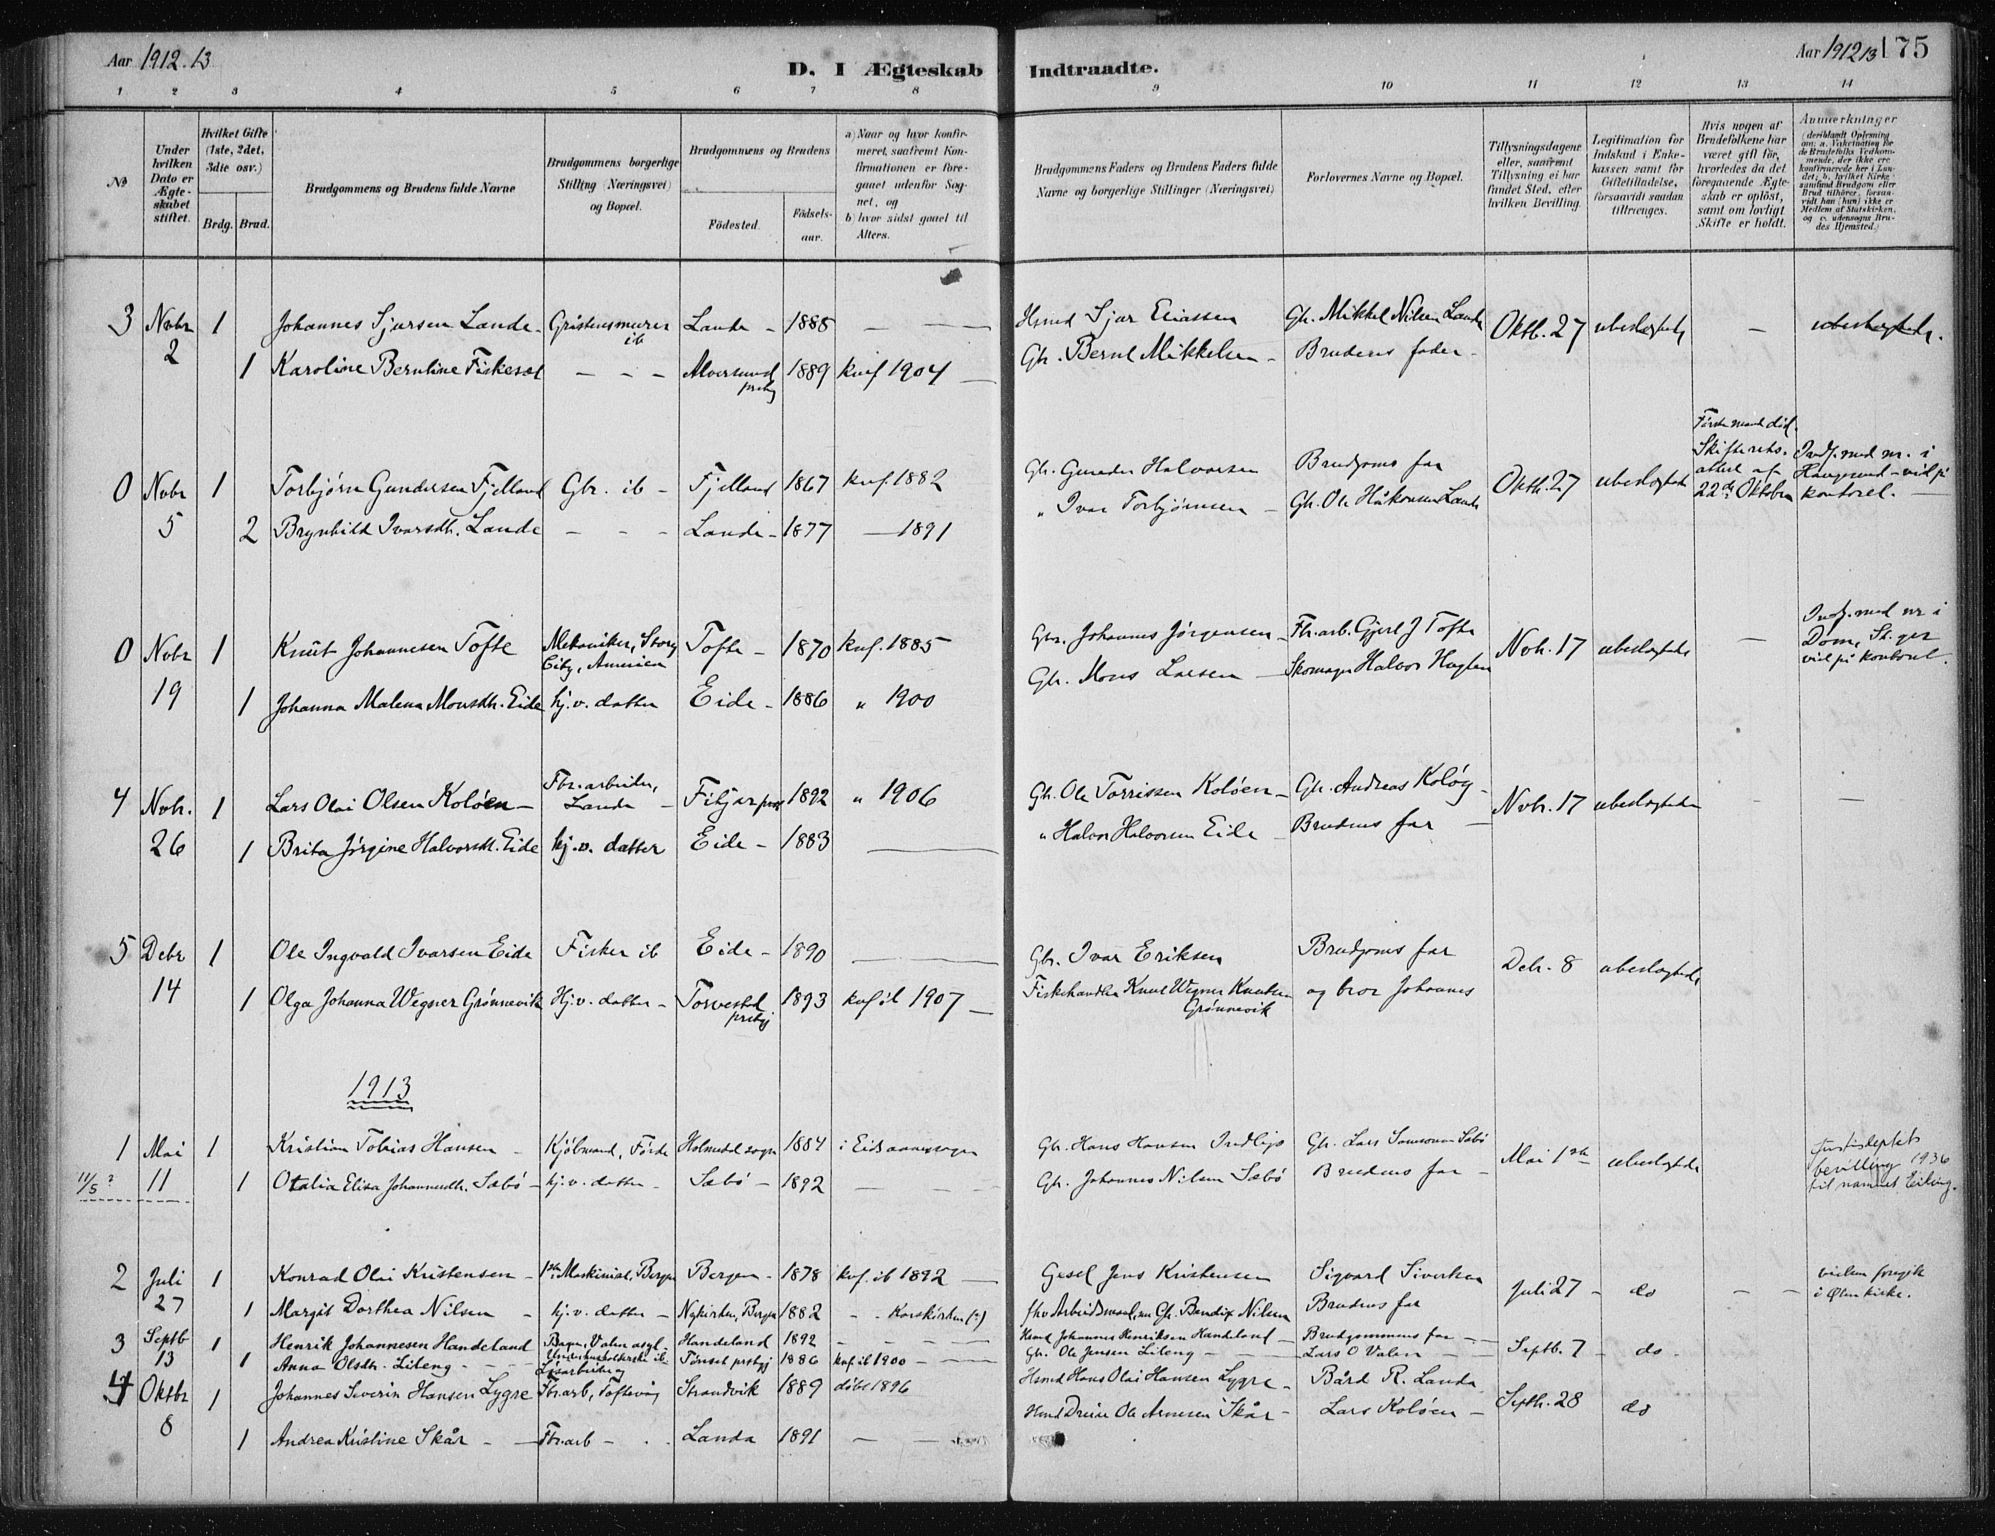 Aar 1912.13
D. I Ægteskab Indtraadte.
Aar 1912 13 175
1 2 3 4 5 6 7 8 9 10 11 12 13 14
No
Under hvilken Dato er Ægte- skabet stiftet.
Hvilket Gifte (1ste, 2det, 3die osv.)
Brdg. Brud.
Brudgommens og Brudens fulde Navne
Brudgommens borgerlige Stilling (Næringsvei) og Bopæl.
Brudgommens og Brudens
Fødested.
Fødsels- aar.
a) Naar og hvor konfir- meret, saafremt Kon- firmationen er fore- gaaet udenfor Sog- net, og
b) hvor sidst gaaet til Alters.
Brudgommens Faders og Brudens Faders fulde Navne og borgerlige Stillinger (Næringsvei)
Forlovernes Navne og Bopæl.
Tillysningsdagene eller, saafremt Tillysning ei har fundet Sted, efter hvilken Bevilling.
Legitimation for Indskud i Enke- kassen samt for Giftetilladelse, forsaavidt saadan tiltrænges.
Hvis nogen af Brudefolkene har været gift før, hvorledes da det foregaaende Ægte- skab er opløst, samt om lovligt Skifte er holdt.
Anmærkninger (deriblandt Oplysning om: a. Vakcination for de Brudefolks Vedkom- mende, der ikke ere konfirmerede her i Lan- det; b. hvilket Kirke- samfund Brudgom eller Brud tilhører, forsaa- vidt han (hun) ikke er Medlem af Statskirken, og c. udensogns Bru- des Hjemsted.)
3 Novbr 2 1 Johannes Sjursen Lande - Gråstensmurer ib Lande - 1888 — — Hsmd Sjur Eliassen Gb. Mikkel Nilsen Lande Oktb. 27 ubeslægtede — ubeslægtede.
1 Karoline Berntine Fiskeset - - - Alversund prstgj 1889 knf 1904 — Gb. Bernt Mikkelsen - Brudens fader -
0 Novbr 5 1 Torbjørn Gundersen Fjelland Gbr. ib - Fjelland 1867 knf. 1882 Gb. Gunder Halvorsen Brudgoms far Oktb. 27 ubeslægtede Første mand død. Skifterets- attest af 22de Oktober Indf. med nr. i Haugesund - vid på kontoret. —
2 Brynhild Ivarsdtr. Lande - - - Lande - 1877 — 1891 " Ivar Torbjørnsen - Gb. Ole Håkonsen Lande
0 Novbr 19 1 Knut Johannesen Tofte Mekaniker, Story City, Amerika Tofte - 1870 knf. 1885 Gbr. Johannes Jørgensen - Fbr.arb. Gjert J Tofte Novb. 17 ubeslægtede — Indf. med nr i Dom, St. ger vid på kontoret.
1 Johanna Malena Monsdtr. Eide hj.v. datter Eide - 1886 " 1900 Gb. Mons Larsen - Skomager Halvor Hagland
4 Novbr. 26 1 Lars Olai Olsen Koløen - Fbr.arbeider, Lande - Fitjar prst 1892 " 1906 Gb. Ole Torrissen Koløen - Gb. Andreas Koløy - Novb. 17 ubeslægtede — —
1 Brita Jørgine Halvorsdtr. Eide hj.v. datter Eide - 1883 — " Halvor Halvorsen Eide - Brudens far —
5 Debr 14 1 Ole Ingvald Ivarsen Eide Fisker ib Eide - 1890 — Gbr. Ivar Eriksen Brudgoms far Debr. 8 ubeslægtede
1 Olga Johanna Wegner Grønnevik Hj.v. datter - Torvestad prstgj 1893 knf ib 1907 — Fiskehandler Knut Wegner Knutsen Grønnevik og bror Johannes
1913
1 Mai 11 1 Kristian Tobias Hansen - Kjøbmand, Førde Holmedal sogn 1884 i Eid annexsogn Gb. Hans Hansen Gb. Lars Samsonsen Sæbø Mai 1ste ubeslægtede Justisdeptets bevilling 1936 til namnet Eiling.
11/5 ? 1 Otalia Elisa Johannesdtr. Sæbø - hj.v. datter - Sæbø - 1892 - - - Gb. Johannes Nilsen Sæbø Brudens far -
2 Juli 27 1 Konrad Olai Kristensen - 1ste Maskinist, Bergen Bergen - 1878 knf. ib 1892 — Gesel Jens Kristensen Sigvard Sivertsen Juli 27 - do - - vielsen foregik i Ølen kirke.
1 Margit Dorthea Nilsen - hj.v. datter - Nykirken, Bergen 1882 - . Korskirken (?) fhv Arbeidsmand, nu Gb. Bendix Nilsen Brudens far
3 Septb 13 1 Henrik Johannesen Handeland Bager, Valen asyl - Handeland 1892 - - - - Hsmd Johannes Henriksen Handeland - Brudgommens far - - Septb. 7 - do -
1 Anna Olsdtr. Lileng - - - Underholderske ib Tønset prstgj 1886 knf ib 1900 - - Gb. Ole Jensen Lileng - - Lars O Valen -
4 Oktbr 8 1 Johannes Severin Hansen Lygre Fbr.arb, Toftevåg Strandvik 1889 døbt 1896 Hsmd Hans Olai Hansen Lygre - Bård R. Landa Septb. 28 do
1 Andrea Kristine Skår - - Fbr.arb - . . Landa 1891 - - Hsmd Ole Arnesen Skår - Lars Koløen -